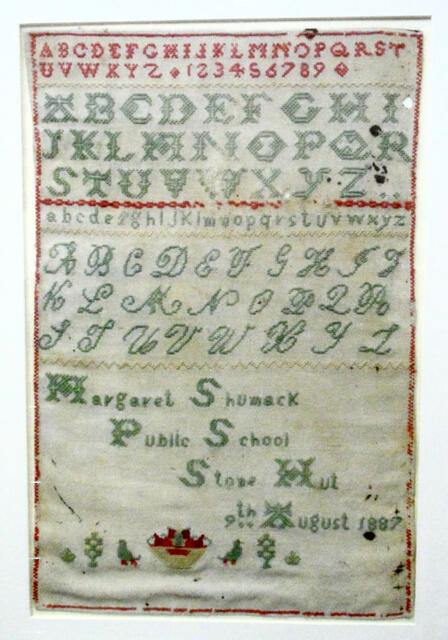 ABCDEFGHIJKLMNOPQRST
UVWXYZ 123456789
ABCDEFGHI
JKLMNOPQR
STUVWXYZ
abcdefghIJKlmnopqrstuvwxyz
ABCDEFGHIJ
KLMNOPQR
STUVWXYZ
Margaret Shumack
Public School
Stone Hut
9th August 1887